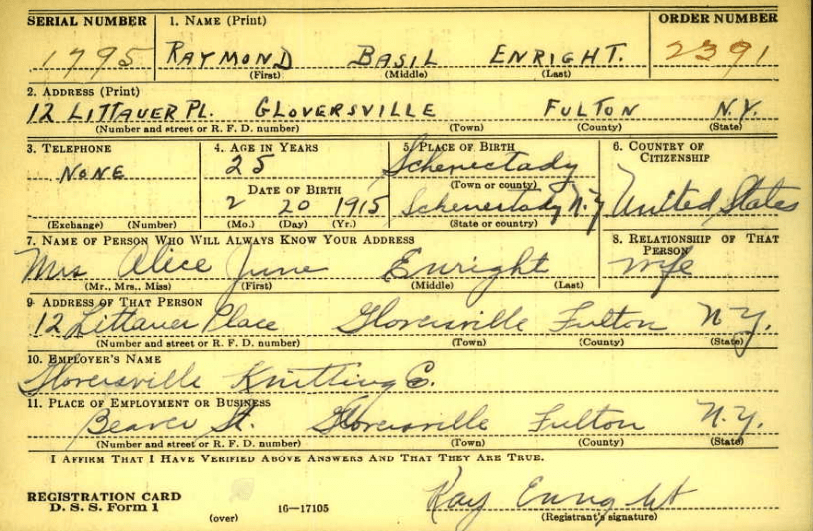 SERIAL NUMBER 1. NAME (Print) ORDER NUMBER
1795 RAYMOND BASIL ENRIGHT. 2391
(First) (Middle) (Last)
2. ADDRESS (Print)
12 LITTAUER PL. GLOVERSVILLE FULTON N.Y.
(Number and street or R. F. D. number) (Town) (County) (State)
3. TELEPHONE 4. AGE IN YEARS 5. PLACE OF BIRTH 6. COUNTRY OF CITIZENSHIP
NONE 25 Schenectady
DATE OF BIRTH (Town or county)
2 20 1915 Schenectady N.Y United States
(Exchange) (Number) (Mo.) (Day) (Yr.) (State or country)
7. NAME OF PERSON WHO WILL ALWAYS KNOW YOUR ADDRESS 8. RELATIONSHIP OF THAT PERSON
Mrs Alice June Enright wife
(Mr., Mrs., Miss) (First) (Middle) (Last)
9. ADDRESS OF THAT PERSON
12 Littauer Place Gloversville Fulton N.Y.
(Number and street or R. F. D. number) (Town) (County) (State)
10. EMPLOYER'S NAME
Gloversville Knitting Co.
11. PLACE OF EMPLOYMENT OR BUSINESS
Beaver St. Gloversville Fulton N.Y.
(Number and street or R. F. D. number) (Town) (County) (State)
I AFFIRM THAT I HAVE VERIFIED ABOVE ANSWERS AND THAT THEY ARE TRUE.
REGISTRATION CARD Ray Enright
D. S. S. Form 1 16—17105 (Registrant's signature)
(over)